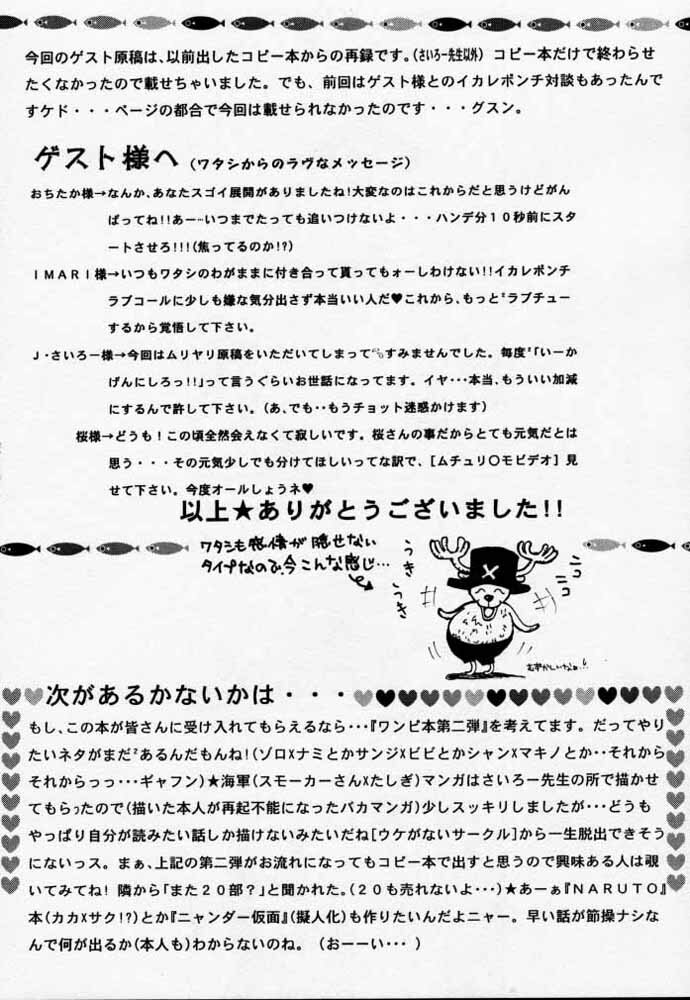 今回のゲスト原稿は、以前出したコピー本からの再録です。(さいろー先生以外) コピー本だけで終わらせ
たくなかったので載せちゃいました。でも、前回はゲスト様とのイカレポンチ対談もあったんで
すケド・・・ページの都合で今回は載せられなかったのです・・・グスン。
ゲスト様へ (ワタシからのラヴなメッセージ)
おちたか様→なんか、あなたスゴイ展開がありましたね!大変なのはこれからだと思うけどがん
ばってね!!あー…いつまでたっても追いつけないよ・・・ハンデ分10秒前にスタ
ートさせろ!!!(焦ってるのか!?)
IMARI様→いつもワタシのわがままに付き合って貰ってもォーしわけない!!イカレポンチ
ラブコールに少しも嫌な気分出さず本当いい人だ♥これから、もっと²ラブチュー
するから覚悟して下さい。
J・さいろー様→今回はムリヤリ原稿をいただいてしまって すみませんでした。毎度²「いーか
げんにしろっ!!」って言うぐらいお世話になってます。イヤ・・・本当、もういい加減
にするんで許して下さい。(あ、でも・・もうチョット迷惑かけます)
桜様→どうも!この頃全然会えなくて寂しいです。桜さんの事だからとても元気だとは
思う・・・その元気少しでも分けてほしいってな訳で、[ムチュリ〇モビデオ]見
せて下さい。今度オールしょうネ♥
以上★ありがとうございました!!
ワタシも感情が隠せない
タイプなので今こんな感じ…
うき
うき
ニコ
ニコ
むずかしいなぁ…!
次があるかないかは・・・
もし、この本が皆さんに受け入れてもらえるなら・・・『ワンピ本第二弾』を考えてます。だってやり
たいネタがまだ²あるんだもんね!(ゾロ×ナミとかサンジ×ビビとかシャン×マキノとか・・それから
それからっっ・・・ギャフン)★海軍(スモーカーさん×たしぎ)マンガはさいろー先生の所で描かせ
てもらったので(描いた本人が再起不能になったバカマンガ)少しスッキリしましたが・・・どうも
やっぱり自分が読みたい話しか描けないみたいだね[ウケがないサークル]から一生脱出できそう
にないっス。まぁ、上記の第二弾がお流れになってもコピー本で出すと思うので興味ある人は覗
いてみてね!隣から「また20部?」と聞かれた。(20も売れないよ・・・)★あーぁ『NARUTO』
本(カカ×サク!?)とか『ニャンダー仮面』(擬人化)も作りたいんだよニャー。早い話が節操ナシな
んで何が出るか(本人も)わからないのね。 (おーーい・・・)